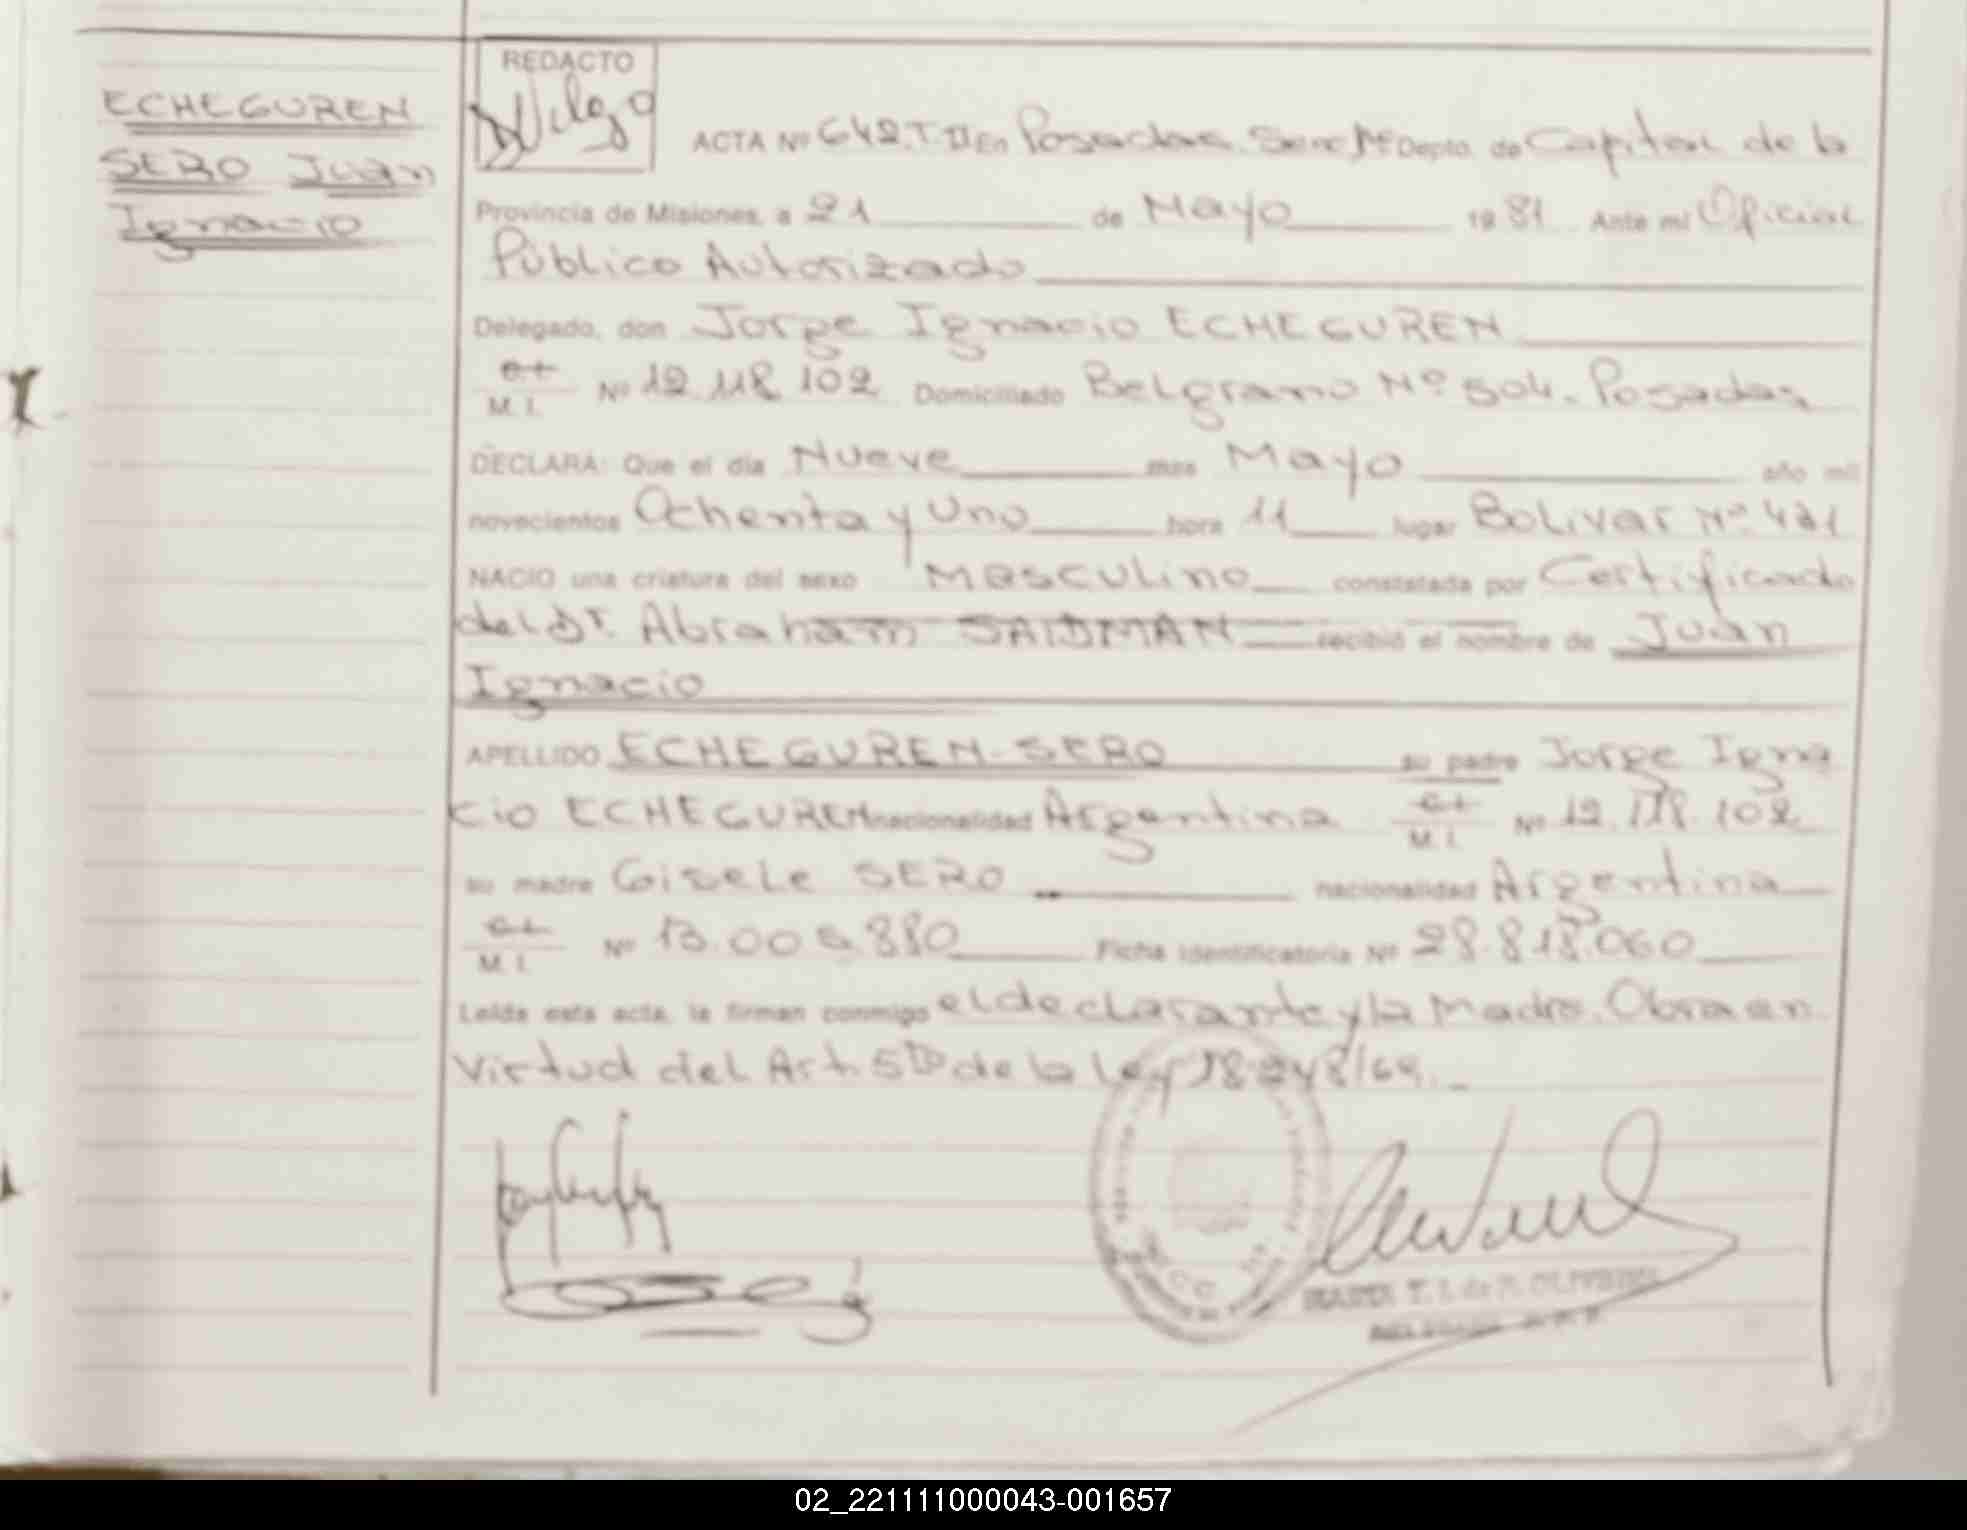 ECHEGUREN
SERO Juan
Ignacio
REDACTO
ACTA Nº 642.T.II En Posadas. Depto. de Capital de la
Provincia de Misiones, a 21 de Mayo 1981 Ante mi Oficial
Público Autorizado
Delegado, don Jorge Ignacio ECHEGUREN
M. I. Nº 12.118.102 Domiciliado Belgrano Nº 504. Posadas
DECLARA: Que el día Nueve mes Mayo año mil
novecientos Ochenta y Uno hora 11 lugar Bolivar Nº 421
NACIO una criatura del sexo Masculino constatada por Certificado
del Dr. Abraham SAIDMAN recibió el nombre de Juan
Ignacio
APELLIDO ECHEGUREN-SERO su padre Jorge Igna
cio ECHEGUREN nacionalidad Argentina
M. I. Nº 12.118.102
su madre Gisele SERO nacionalidad Argentina
M. I. Nº Ficha Identificatoria Nº 28.818.060
Leída esta acta, la firman conmigo el declarante y la Madre. Obra en
Virtud del Art. 5to de la Ley
02_221111000043-001657